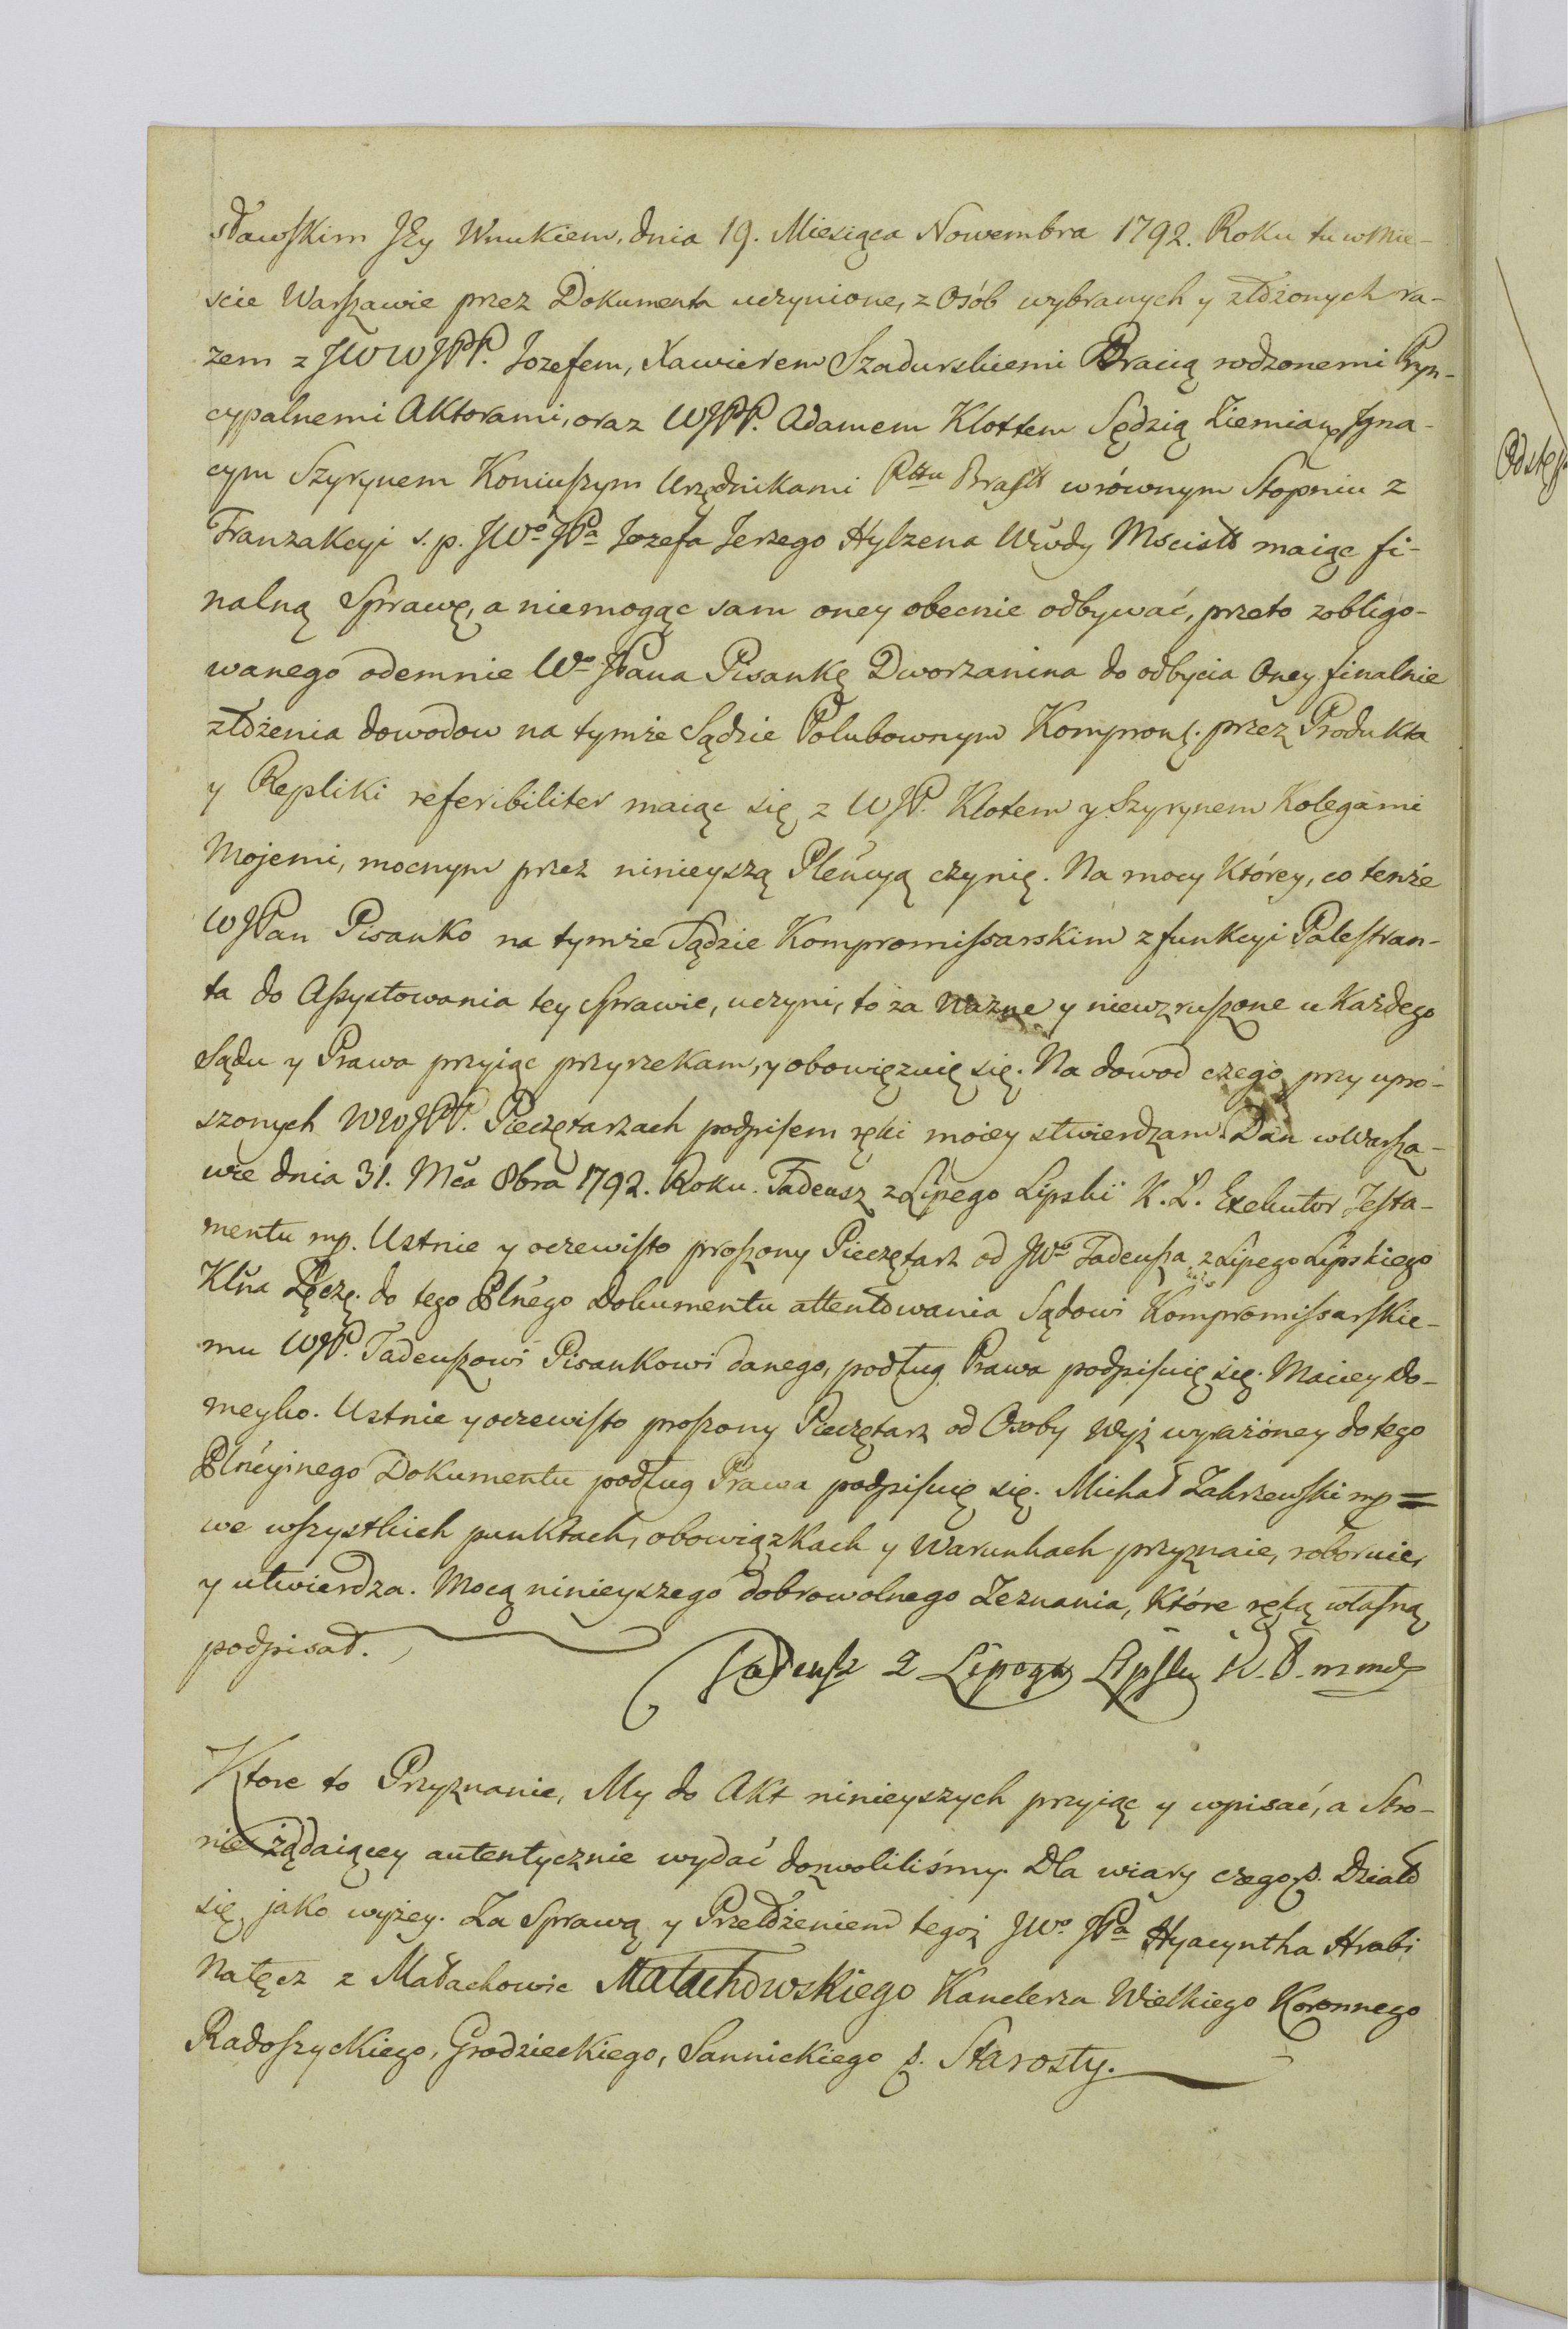 sławskim JEy Wnukiem, dnia 19. Miesiąca Nowembra 1792. Roku tu w Mie-
scie Warszawie przez Dokumenta uczynione, z Osób wybranych y złożonych ra-
zem z JWWJPP. Jozefem, Xawierem Szadurskiemi Bracią rodzonemi Pryn-
cypalnemi Aktorami, oraz WJPP. Adamem Klottem Sędzią Ziemian, Igna-
cym Szyrynem Koniuszym Urzędnikami Pttu Brasł w równym Stopniu z
Tranzakcyi s. p. JWo JPa Jozefa Jerzego Hylzena Wwdy Mscisł maiąc fi-
nalną Sprawę, a niemogąc sam oney obecnie odbywać, przeto zobligo-
wanego odemnie Wo JPana Pisankę Dworzanina do odbycia Oney finalnie
złożenia dowodow na tymże Sądzie Polubownym Kompromis. przez Produkta
y Repliki referibiliter maiąc się z WJP. Klotem y Szyrynem Kolegami
Mojemi, mocnym przez ninieyszą Plencyą czynię. Na mocy Którey, co tenże
WJPan Pisanko na tymże Sądzie Kompromissarskim z funkcyi Palestran-
ta do Assystowania tey Sprawie, uczyni, to za Ważne y niewzruszone u Każdego
Sądu y Prawa przyiąc przyrzekam, y obowięzuię się. Na dowod czego przy upro-
szonych WWJPP. Pieczętarzach podpisem ręki moiey stwierdzam. Dan w Warsza-
wie dnia 31. Mca 8bra 1792. Roku. Tadeusz z Lipego Lipski K. Ł. Exekutor Testa-
mentu mp. Ustnie y oczewisto proszony Pieczętarz od JWo Tadeusza z Lipego Lipskiego
Kllna Łęczę. do tego Plnego Dokumentu attentowania Sądowi Kompromissarskie-
mu WJP. Tadeuszowi Pisankowi danego, podług Prawa podpisuię się. Maciey Do-
meyko. Ustnie y oczewisto proszony Pieczętarz od Osoby Wyż wyrażóney do tego
Plncyinego Dokumentu podług Prawa podpisuię się. Michał Zakrzewski mp =
we wszystkich punktach, obowiązkach y Warunkach przyznaie, roboruie,
y utwierdza. Mocą ninieyszego dobrowolnego Zeznania, Które ręką własną
podpisał.
Tadeusz z Lipego Lipski K. Ł. m
Ktore to Przyznanie, My do Akt ninieyszych przyiąc y wpisać, a Stro-
nie żądaiącey autentycznie wydać dozwoliliśmy. Dla wiary czego p. Działo
się jako wyżey. Za Sprawą y Przełożeniem tegoż JWo JPa Hyacyntha Hrabi
Nałęcz z Małachowic Małachowskiego Kanclerza Wielkiego Koronnego
Radoszyckiego, Grodzieckiego, Sannickiego p. Starosty.